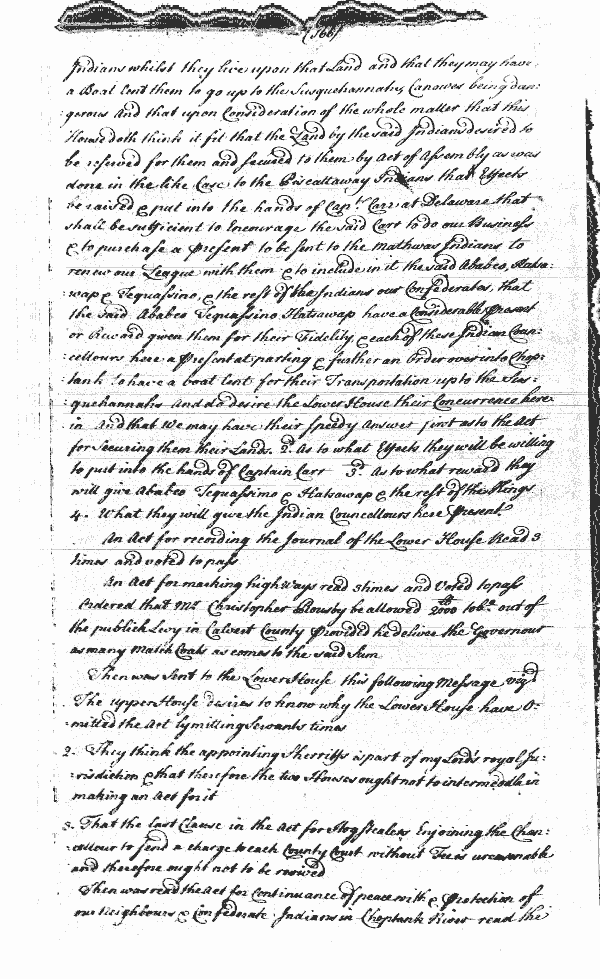 (166)
Indians whilst they live upon that Land and that they may have
a Boat lent them to go up to the Susquehannahs, Canowes being dan:
:gerous And that upon Consideration of the whole matter that this
House doth think it fit that the Land by the said Indians desired to
be reserved for them and secured to them by Act of Assembly as was
done in the like Case to the Piscattaway Indians that Effects
be raised & put into the hands of Capt. Carr at Delaware that
shall be sufficient to Encourage the said Carr to do our Business
& to purchase a Present to be sent to the Mathwas Indians to
renew our League with them & to include in it the said Ababco, Hatsa:
:wap & Tequassino, & the rest of the Indians our Confederates, that
the said Ababco Tequassino Hatsawap have a Considerable Present
or Reward given them for their Fidelity, & each of these Indian Coun:
:cellours here a Present at parting & further an Order over into Chop:
:tank to have a boat lent for their Transportation up to the Sus:
:quehannahs And do desire the Lower House their Concurrence here
in And that We may have their Speedy Answer first as to the Act
for Securing them their Lands. 2d. As to what Effects they will be willing
to put into the hands of Captain Carr 3d. As to what reward they
will give Ababco Tequassimo & Hatsawap & the rest of the Kings
4. What they will give the Indian Councellours here Present
An Act for recording the Journal of the Lower House Read 3
times and voted to pass
An Act for marking high Ways read 3 times and Voted to pass
Ordered that Mr. Christopher Rousby be allowed 2000 lb tobo. out of
the publick Levy in Calvert County Provided he deliver the Governour
as many Match Coats as comes to the said Sum
Then was Sent to the Lower House this following Message vizd
The upper House desires to know why the Lower House have O:
:mitted the Act lymitting Servants times
2. They think the appointing Sherriffs is part of my Lords royal Ju:
:risdiction & that therefore the two Houses ought not to intermeddle in
making an Act for it
3. That the last Clause in the Act for Hogstealers Enjoining the Chan:
:cellour to send a charge to each County Court without Fee is unreasonable
and therefore ought not to be revived
Then was read the Act for Continuance of peace with & Protection of
our Neighbours & Confederate Indians in Choptank River read the